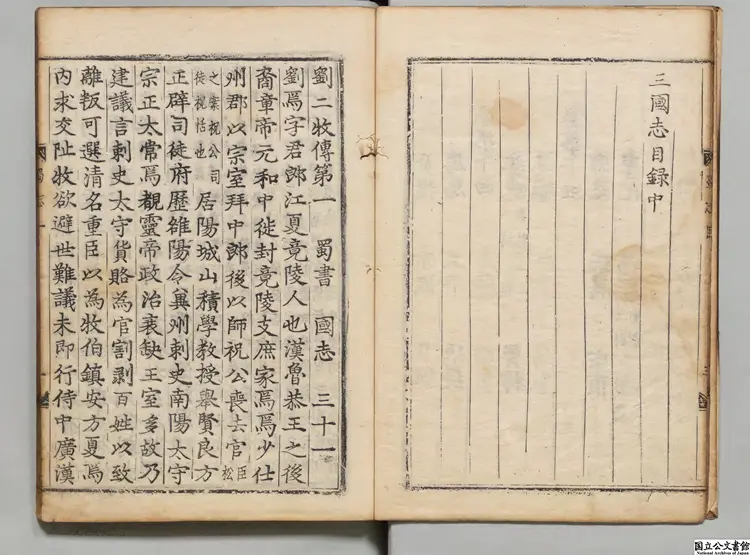 三國志目録中
劉二牧傳第一 蜀書 國志 三十一
劉焉字君郎江夏竟陵人也漢魯恭王之後
裔章帝元和中徙封竟陵支庶家焉焉少仕
州郡以宗室拜中郎後以師祝公喪去官臣松
之案祝公司徒祝恬也居陽城山積學教授舉賢良方
正辟司徒府歷雒陽令兾州刺史南陽太守
宗正太常焉覩靈帝政治衰缺王室多故乃
建議言刺史太守貨賂為官割剥百姓以致
離叛可選清名重臣以為牧伯鎮安方夏焉
內求交阯牧欲避世難議未即行侍中廣漢
国立公文書館
National Archives of Japan